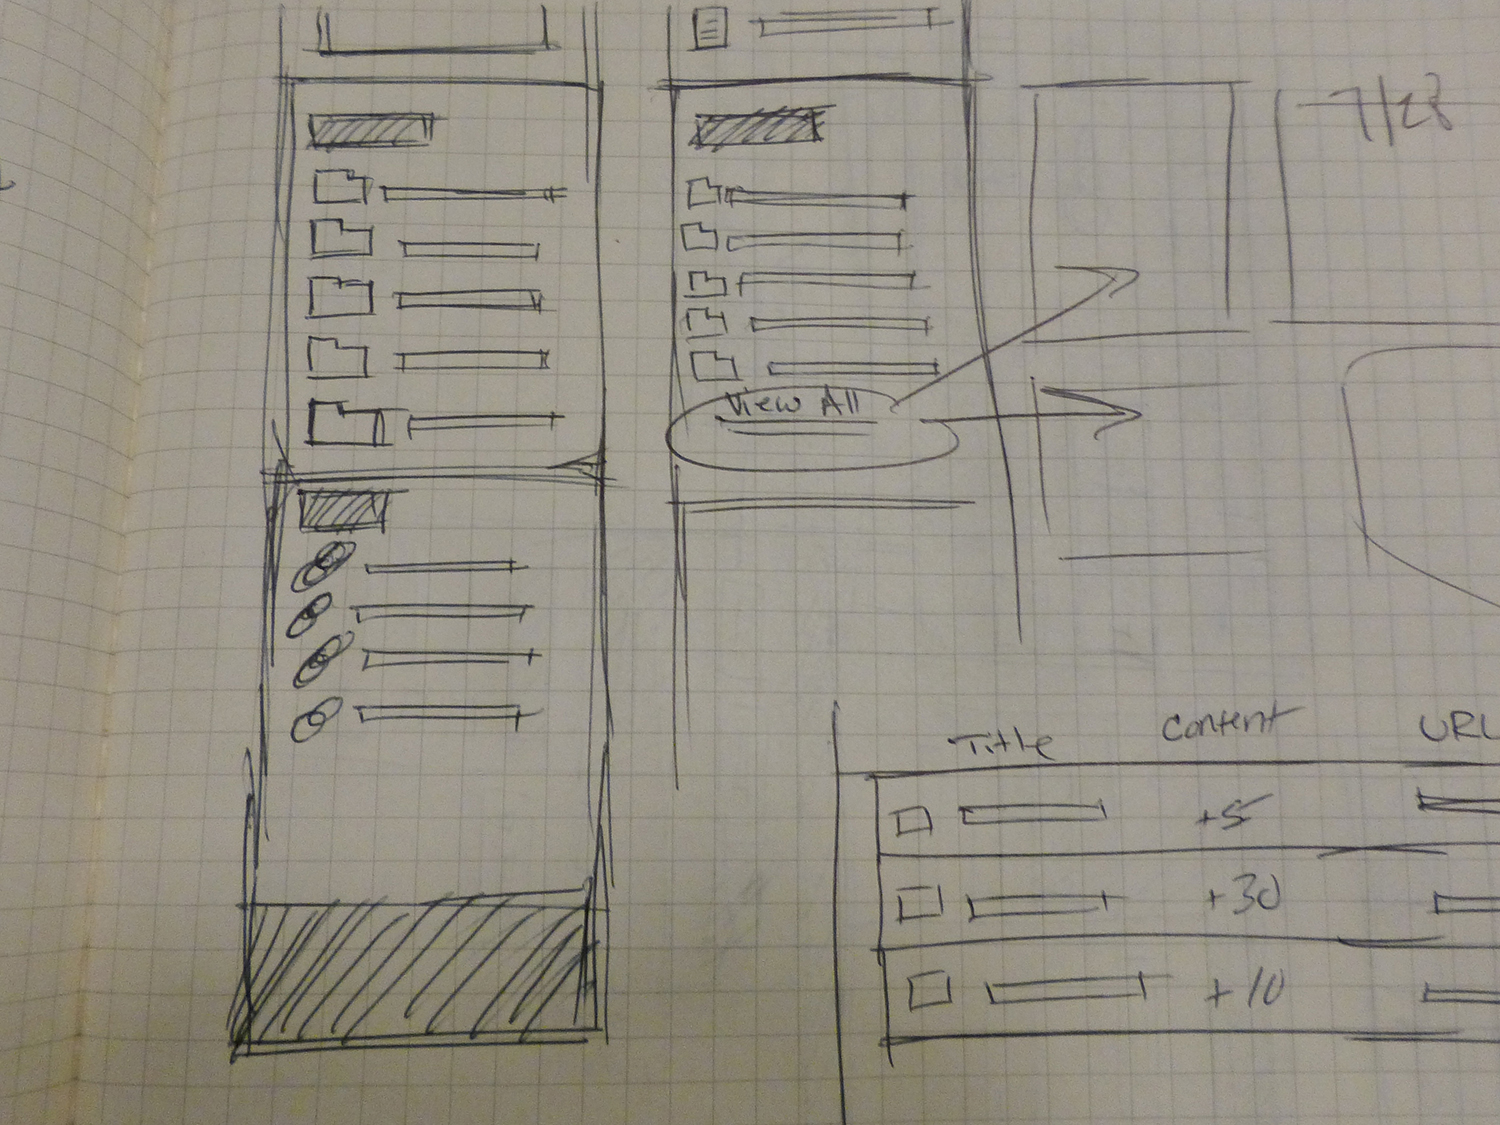 7/28
View All
Title Content URL
+5
+30
+10